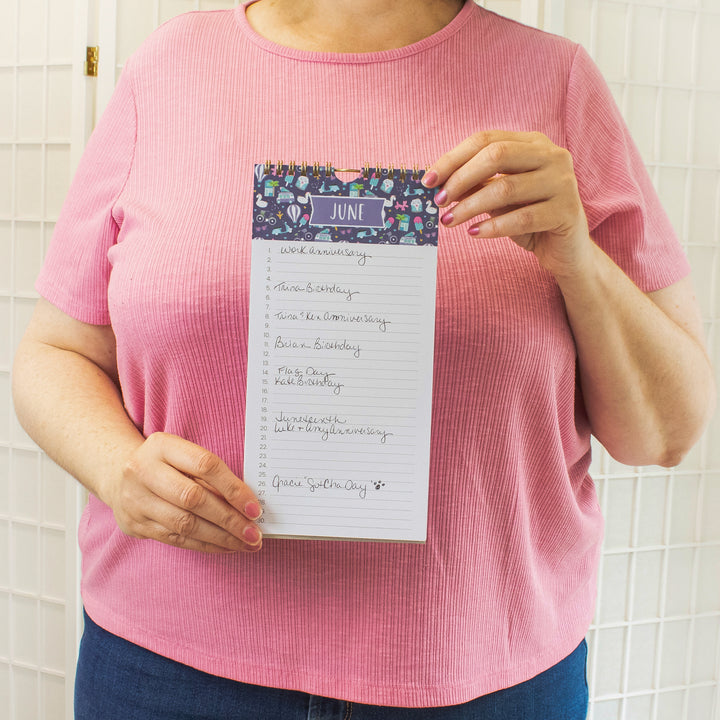 JUNE
1. Work Anniversary
2.
3.
4.
5. Trina Birthday
6.
7.
8. Trina & Ken Anniversary
9.
10.
11. Brian Birthday
12.
13.
14. Flag Day
15. Kate Birthday
16.
17.
18.
19. Juneteenth
20. Luke + Amy Anniversary
21.
22.
23.
24.
25.
26. Gracie "Gotcha Day"
27.
28.
30.